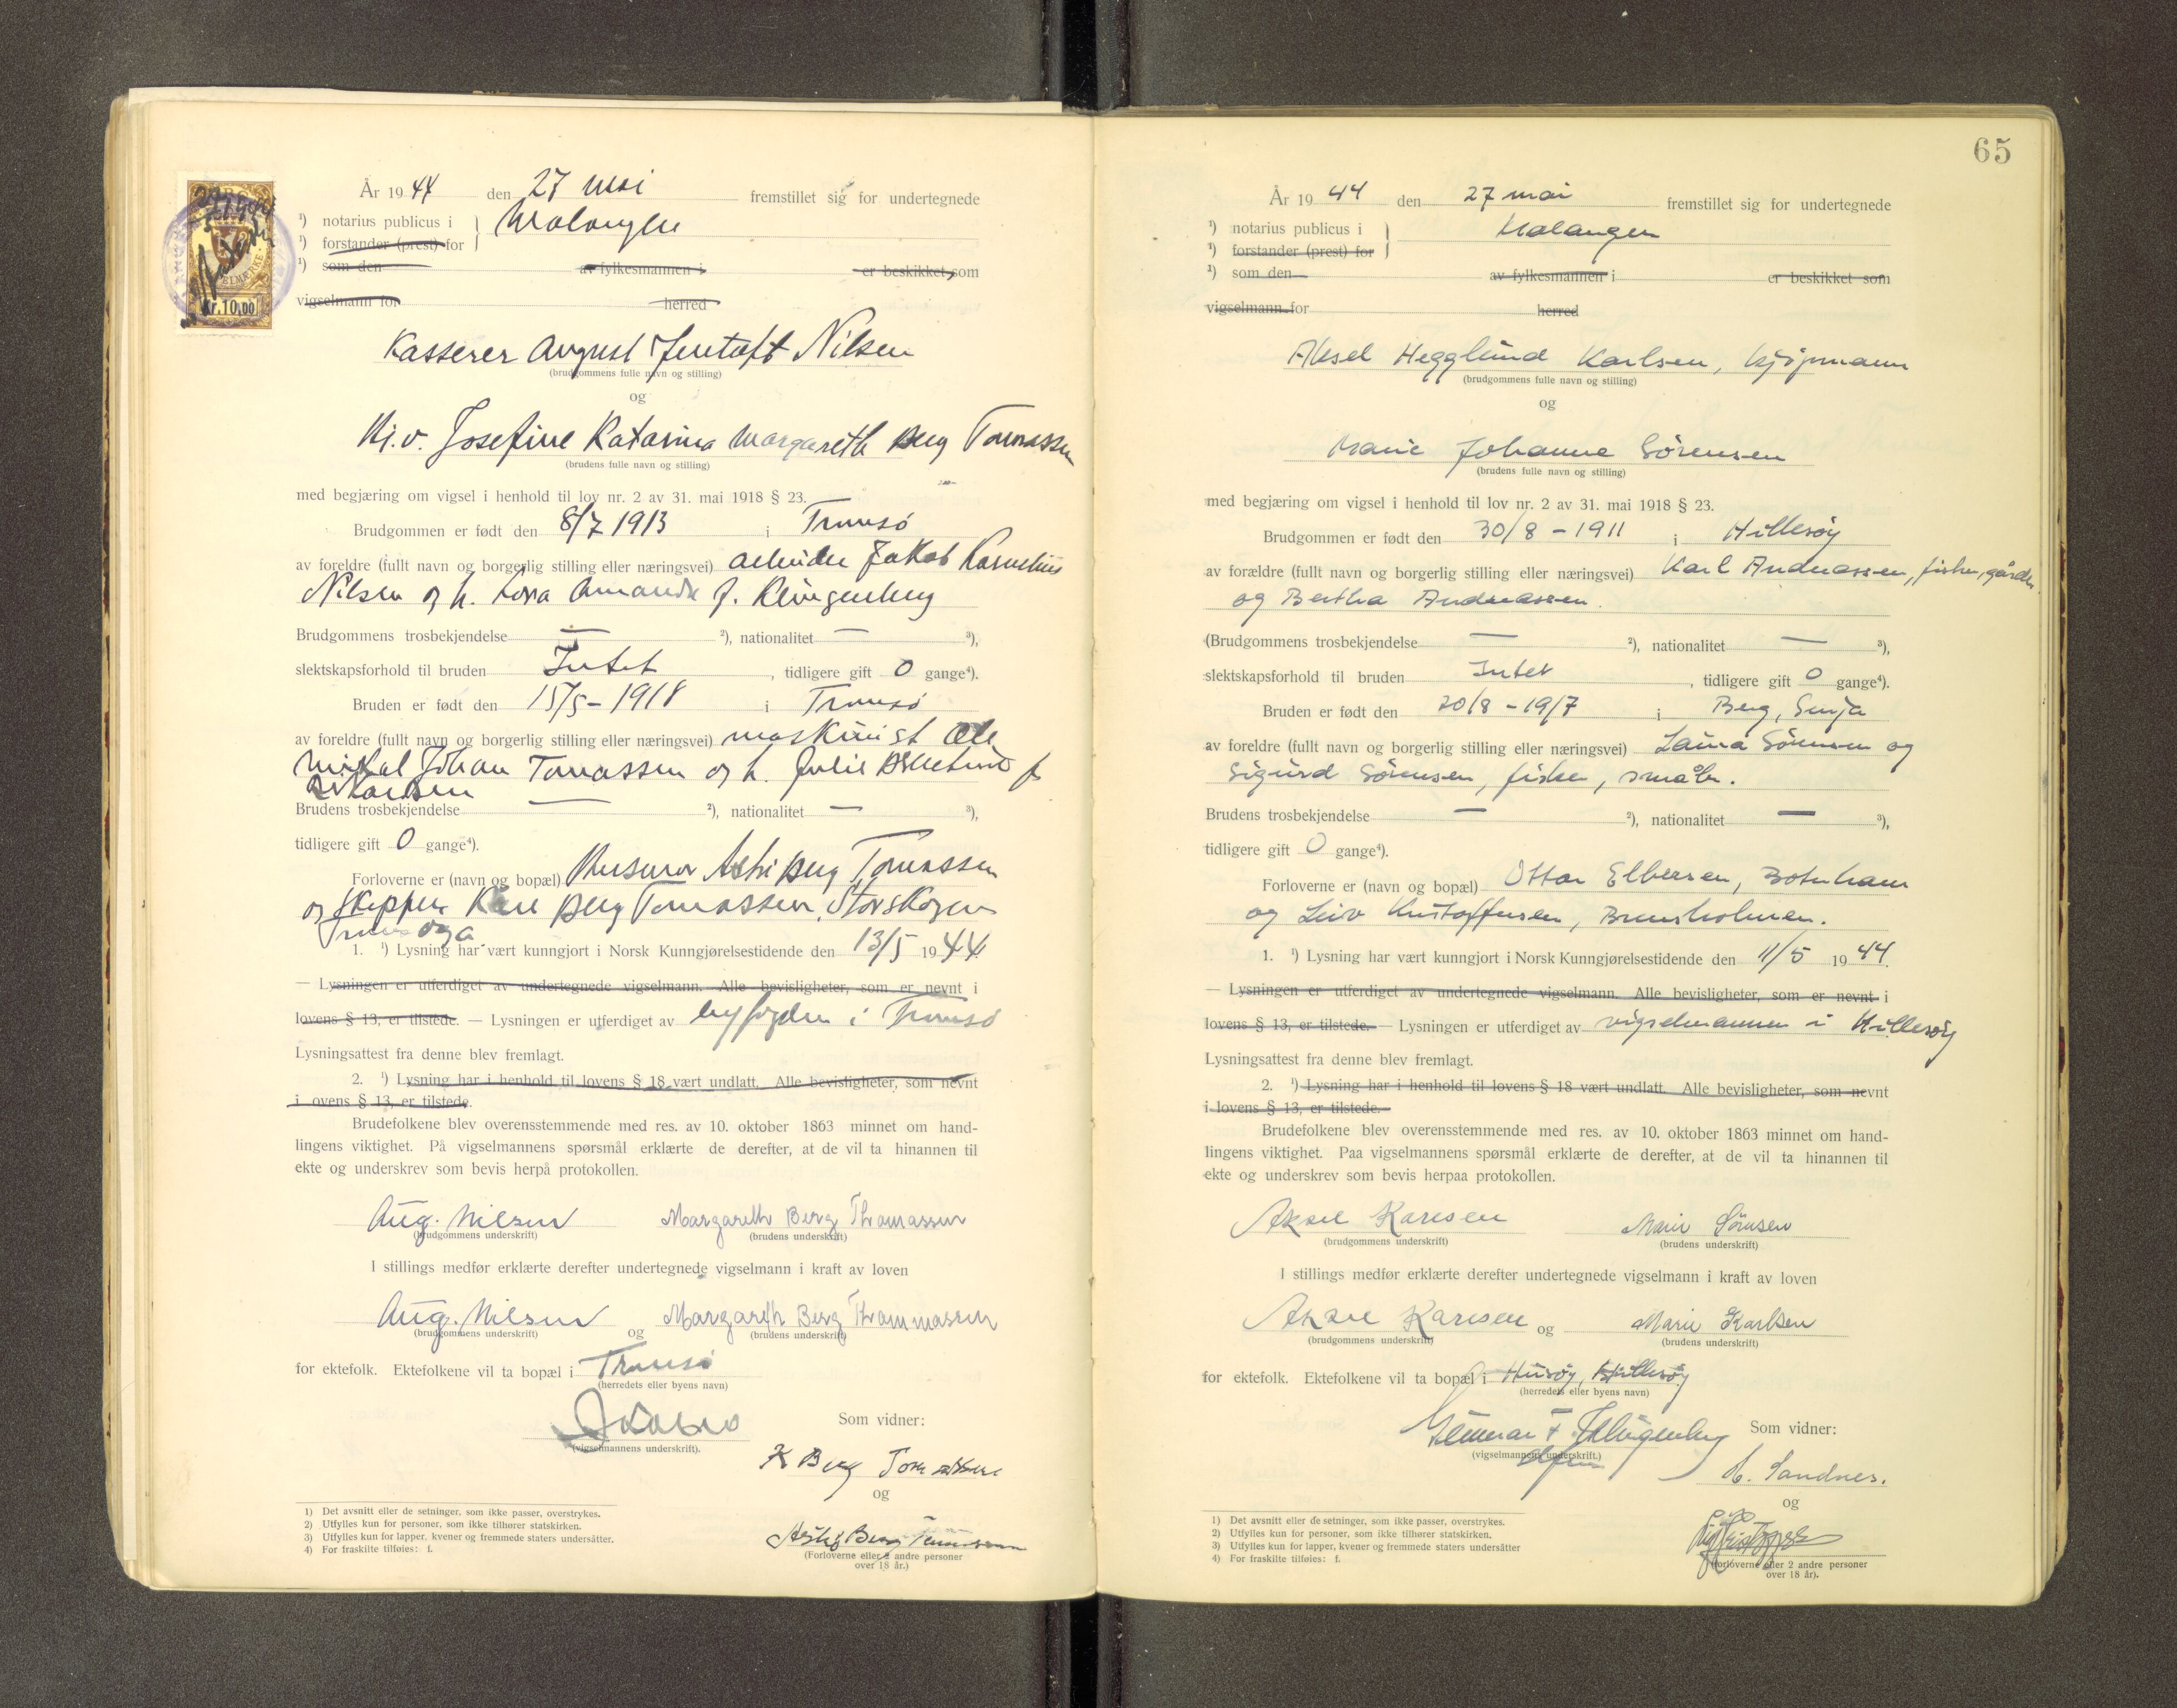 År 1944 den 27 mai fremstillet sig for undertegnede
¹) notarius publicus i Malangen
¹) forstander (prest) for
¹) som den av fylkesmannen i er beskikket som
vigselmann for herred
Kr. 10,00
Kasserer August Jentoft Nilsen
(brudgommens fulle navn og stilling)
og
Josefine Katarina Margareth Berg Tomassen
(brudens fulle navn og stilling)
med begjæring om vigsel i henhold til lov nr. 2 av 31. mai 1918 § 23.
Brudgommen er født den 8/7 1913 i Tromsö
av foreldre (fullt navn og borgerlig stilling eller næringsvei) arbeider Jakob Kornelius
Nilsen og h. Amanda f. Klingenberg
Brudgommens trosbekjendelse — ²), nationalitet — ³),
slektskapsforhold til bruden Intet, tidligere gift 0 gange⁴).
Bruden er født den 15/5-1918 i Tromsö
av foreldre (fullt navn og borgerlig stilling eller næringsvei) maskinist Ole
Mikal Johan Tomassen og h. Julie f.
Brudens trosbekjendelse — ²), nationalitet — ³),
tidligere gift 0 gange⁴).
Forloverne er (navn og bopæl) Berg Tomassen
og skipper Kåre Berg Tomassen, Storskogen
1. ¹) Lysning har vært kunngjort i Norsk Kunngjørelsestidende den 13/5 1944.
— Lysningen er utferdiget av undertegnede vigselmann. Alle bevisligheter, som er nevnt i
lovens § 13, er tilstede. — Lysningen er utferdiget av byfogden i Tromsö
Lysningsattest fra denne blev fremlagt.
2. ¹) Lysning har i henhold til lovens § 18 vært undlatt. Alle bevisligheter, som nevnt
i ovens § 13, er tilstede.
Brudefolkene blev overensstemmende med res. av 10. oktober 1863 minnet om hand-
lingens viktighet. På vigselmannens spørsmål erklærte de derefter, at de vil ta hinannen til
ekte og underskrev som bevis herpå protokollen.
Aug. Nilsen Margareth Berg Thomassen
(brudgommens underskrift) (brudens underskrift)
I stillings medfør erklærte derefter undertegnede vigselmann i kraft av loven
Aug. Nilsen og Margareth Berg Thommassen
(brudgommens underskrift) (brudens underskrift)
for ektefolk. Ektefolkene vil ta bopæl i Tromsö
(herredets eller byens navn)
Som vidner:
(vigselmannens underskrift).
K Berg Tomassen
og
Berg Tomassen
(Forloverne eller 2 andre personer
over 18 år.)
1) Det avsnitt eller de setninger, som ikke passer, overstrykes.
2) Utfylles kun for personer, som ikke tilhører statskirken.
3) Utfylles kun for lapper, kvener og fremmede staters undersåtter.
4) For fraskilte tilføies: f.
65
År 1944 den 27 mai fremstillet sig for undertegnede
¹) notarius publicus i Malangen
¹) forstander (prest) for
¹) som den av fylkesmannen i er beskikket som
vigselmann for herred
Aksel Hegglund Karlsen, kjöpmann
(brudgommens fulle navn og stilling)
og
Marie Johanne Sörensen
(brudens fulle navn og stilling)
med begjæring om vigsel i henhold til lov nr. 2 av 31. mai 1918 § 23.
Brudgommen er født den 30/8 - 1911 i Hillesöy
av forældre (fullt navn og borgerlig stilling eller næringsvei) Karl Andreassen, fisker, gårdbr.
og Bertha Andreassen.
(Brudgommens trosbekjendelse — ²), nationalitet — ³),
slektskapsforhold til bruden Intet, tidligere gift 0 gange⁴).
Bruden er født den 20/8 - 1917 i Berg, Senja
av foreldre (fullt navn og borgerlig stilling eller næringsvei) Laura Sörensen og
Sigurd Sörensen, fisker, småbr.
Brudens trosbekjendelse — ²), nationalitet — ³),
tidligere gift 0 gange⁴).
Forloverne er (navn og bopæl) Ottar Elbersen, Botnhamn
og Leiv Kristoffersen, Brensholmen.
1. ¹) Lysning har vært kunngjort i Norsk Kunngjørelsestidende den 11/5 1944.
— Lysningen er utferdiget av undertegnede vigselmann. Alle bevisligheter, som er nevnt i
lovens § 13, er tilstede. — Lysningen er utferdiget av vigselmannen i Hillesöy
Lysningsattest fra denne blev fremlagt.
2. ¹) Lysning har i henhold til lovens § 18 vært undlatt. Alle bevisligheter, som nevnt
i lovens § 13, er tilstede.
Brudefolkene blev overensstemmende med res. av 10. oktober 1863 minnet om hand-
lingens viktighet. Paa vigselmannens spørsmål erklærte de derefter, at de vil ta hinannen til
ekte og underskrev som bevis herpaa protokollen.
Aksel Karlsen Marie Sörensen
(brudgommens underskrift) (brudens underskrift)
I stillings medfør erklærte derefter undertegnede vigselmann i kraft av loven
Aksel Karlsen og Marie Karlsen
(brudgommens underskrift) (brudens underskrift)
for ektefolk. Ektefolkene vil ta bopæl i Husöy, Hillesöy
(herredets eller byens navn)
Gunnar F Klingenberg Som vidner:
(vigselmannens underskrift.)
Sandnes.
og
(Forloverne eller 2 andre personer
over 18 år).
1) Det avsnitt eller de setninger, som ikke passer, overstrykes.
2) Utfylles kun for personer, som ikke tilhører statskirken.
3) Utfylles kun for lapper, kvener og fremmede staters undersåtter
4) For fraskilte tilføies: f.